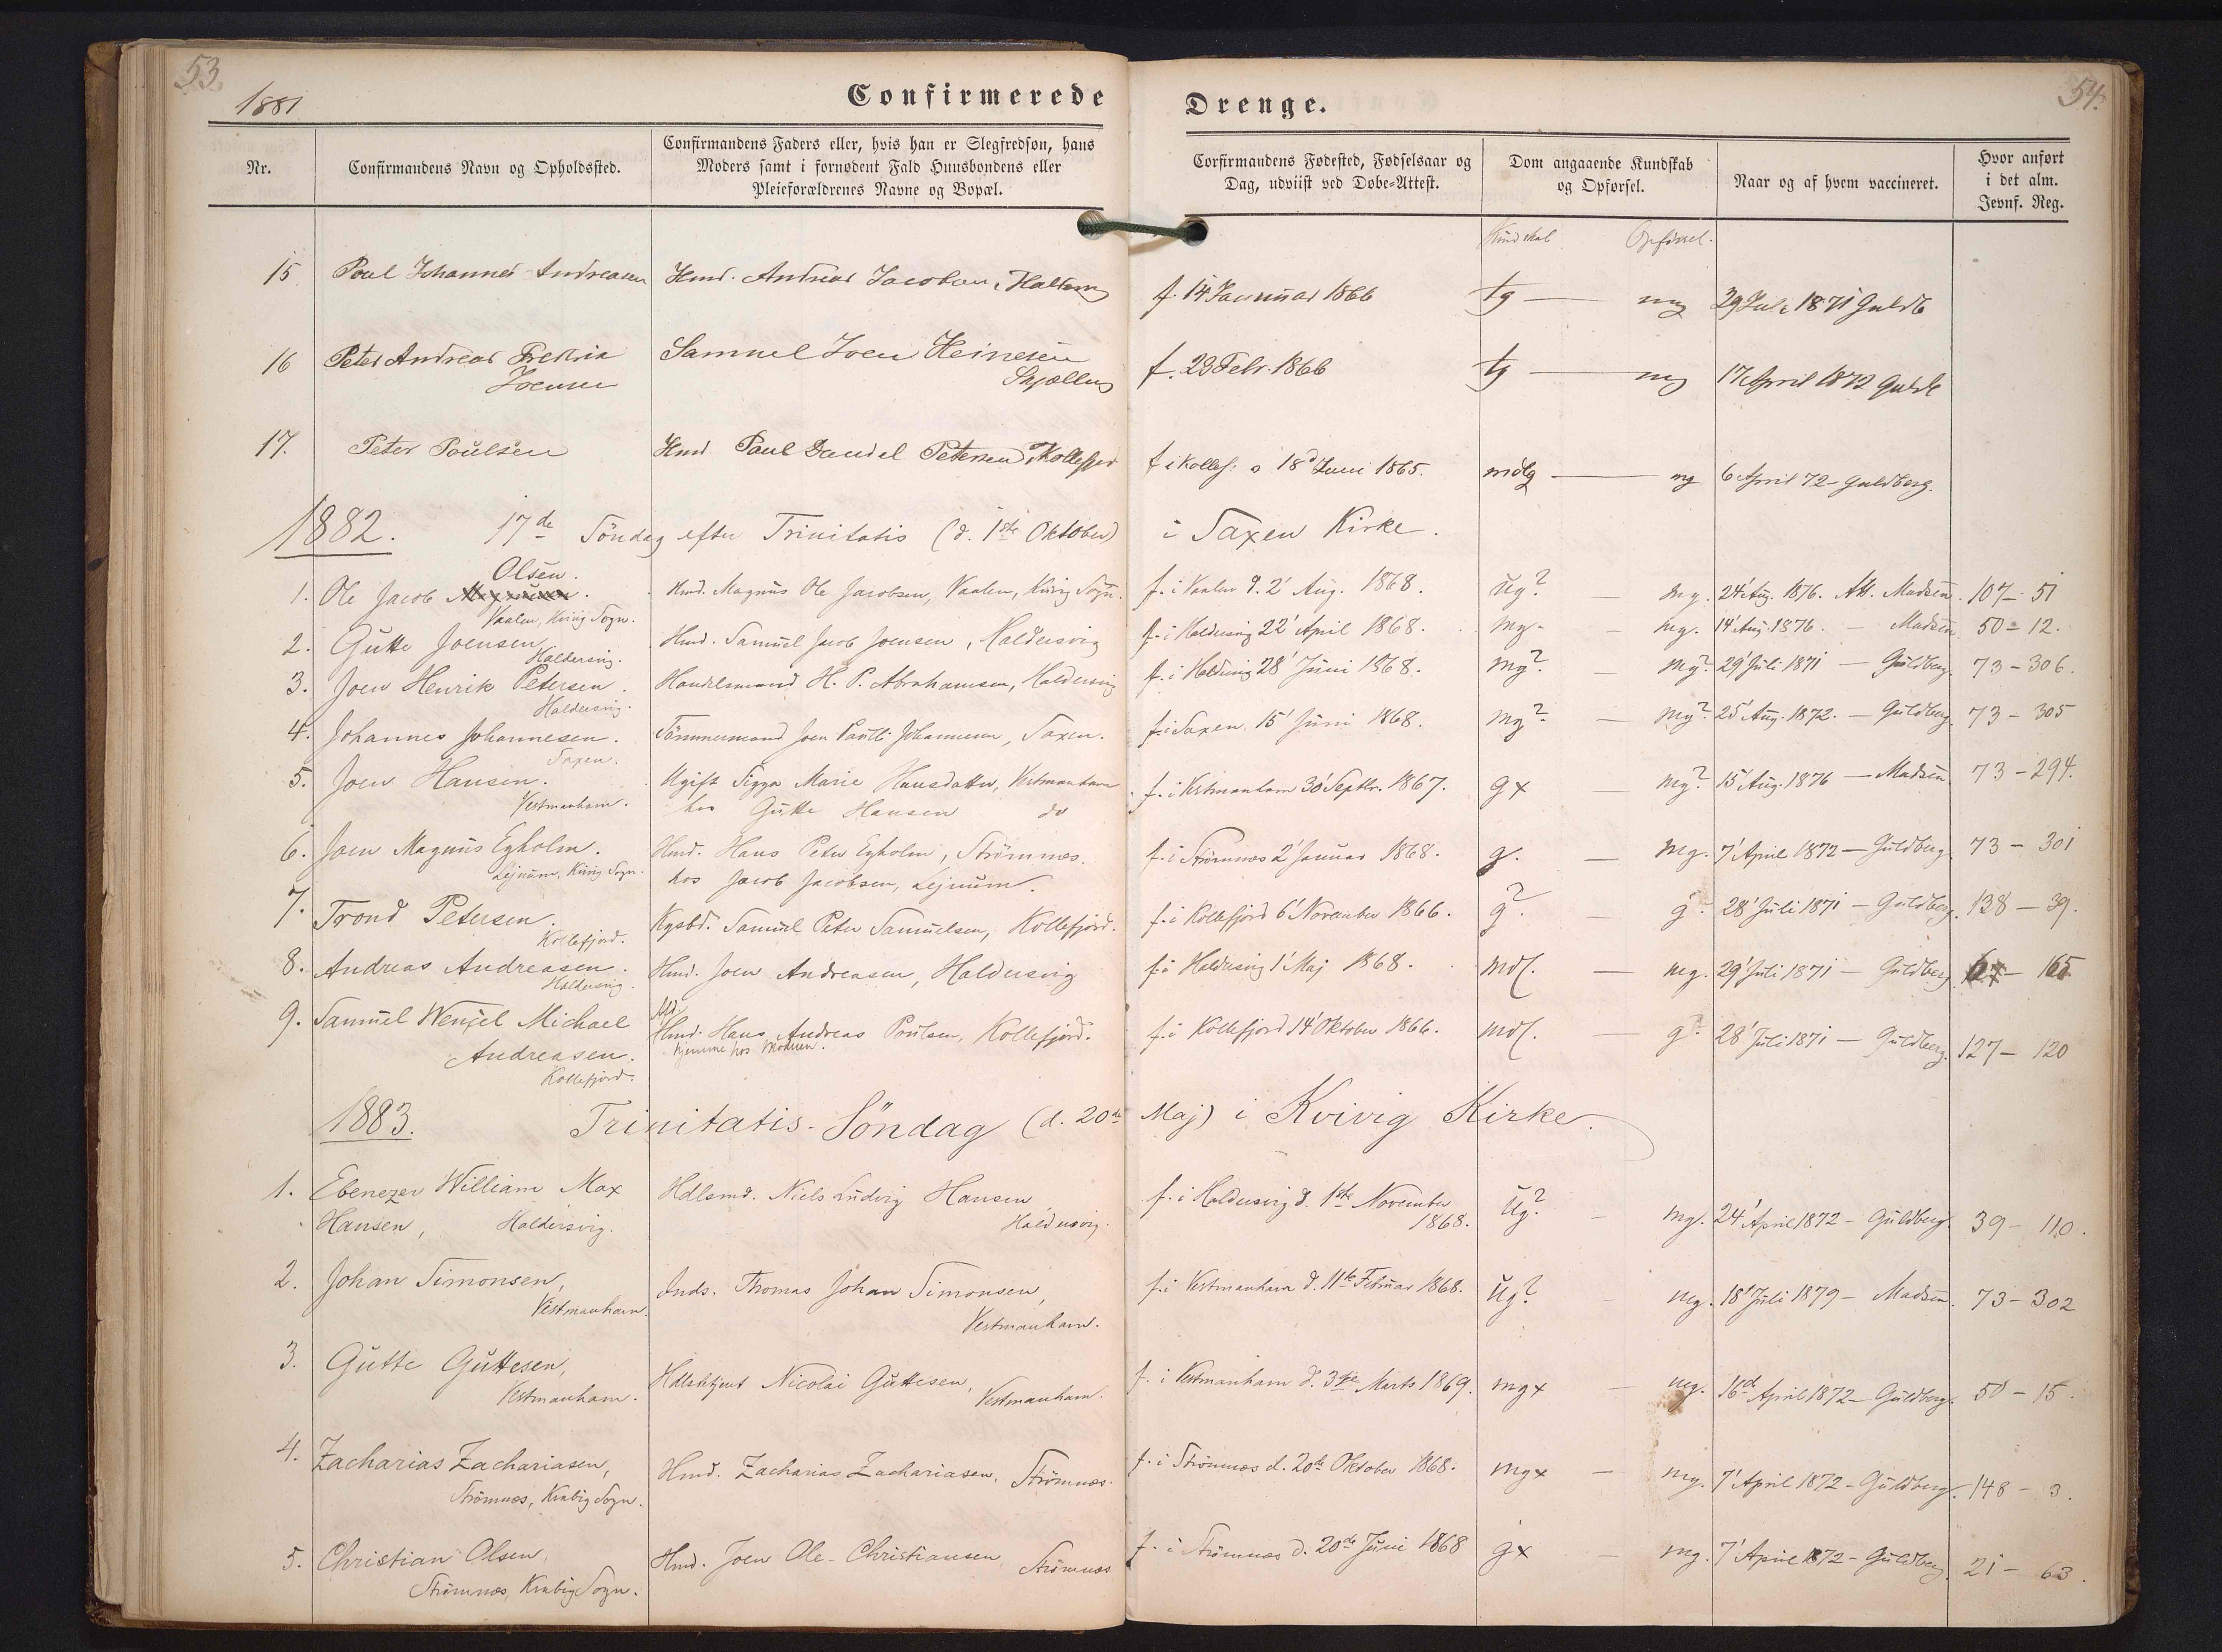 53.
54.
1881
Confirmerede Drenge.
Nr.
Confirmandens Navn og Opholdssted.
Confirmandens Faders eller, hvis han er Slegfredsøn, hans
Moders samt i fornødent Fald Huusbondens eller
Pleieforældrenes Navne og Bopæl.
Corfirmandens Fødested, Fødselsaar og
Dag, udviist ved Døbe-Attest.
Dom angaaende Kundskab
og Opførsel.
Naar og af hvem vaccineret.
Hvor anført
i det alm.
Jevnf. Reg.
Kundskab Opførsel.
15 Poul Johannes Andreasen Hmd. Andreas Jacobsen, Haldersvig f. 14 Januar 1866 tg — mg 29 Juli 1871 Guldb
16 Peter Andreas Fredrik Samuel Joen Heinesen f. 23 Febr. 1866 tg — mg 17 April 1872 Guldb
Joensen Skjælling
17. Peter Poulsen Hmd Poul Daniel Petersen Kollefjord f i Kollef: d 18d Juni 1865. mdlg — mg 6 April 72 - Guldberg.
1882. 17de Söndag efter Trinitatis (d. 1ste Oktober) i Saxen Kirke.
Olsen.
1. Ole Jacob Hmd. Magnus Ole Jacobsen, Vaalen, Kvivig Sogn. f. i Vaalen d. 2' Aug. 1868. ug? — mg. 24' Aug. 1876. Att. Madsen. 107 - 51
Vaalen, Kvivig Sogn.
2. Gutte Joensen, Hmd. Samuel Jacob Joensen, Haldersvig f. i Haldersvig 22' April 1868. mg. — mg. 14' Aug. 1876. — Madsen 50 - 12.
Haldersvig.
3. Joen Henrik Petersen. Handelsmand H. P. Abrahamsen, Haldersvig f. i Haldersvig 28' Juni 1868. mg? — mg? 29' Juli 1871 — Guldberg. 73 - 306.
Haldersvig.
4. Johannes Johannesen. Tömmermand Joen Poul Johannesen, Saxen. f. i Saxen 15' Juni 1868. mg? — mg? 25' Aug. 1872. — Guldberg. 73 - 305
Saxen.
5. Joen Hansen. Ugift Sigga Marie Hansdatter, Vestmanhavn f. i Vestmanhavn 30' Septbr. 1867. gx — mg? 15' Aug. 1876 — Madsen 73 - 294.
Vestmanhavn. hos Gutte Hansen do
6. Joen Magnus Egholm. Hmd. Hans Peter Egholm, Strömnæs. f. i Strömnæs 2' Januar 1868. g. — mg. 7' April 1872 — Guldberg. 73 - 301
Lejnum, Kvivig Sogn. hos Jacob Jacobsen, Lejnum.
7. Trond Petersen. Kgsbd. Samuel Peter Samuelsen, Kollefjord. f. i Kollefjord 6' November 1866. g? — g. 28' Juli 1871 — Guldberg. 138 - 39.
Kollefjord.
8. Andreas Andreasen. Hmd. Joen Andreasen, Haldersvig f. i Haldersvig 1' Maj 1868. mdl. — mg. 29' Juli 1871 — Guldberg 165
Haldersvig.
9. Samuel Wenzel Michael Afd. Hmd. Hans Andreas Poulsen, Kollefjord. f. i Kollefjord 14' Oktober 1866. mdl. — g. 28' Juli 1871 — Guldberg. 127 - 120
Andreasen. hjemme hos Moderen.
Kollefjord.
1883. Trinitatis-Söndag (d. 20de Maj) i Kvivig Kirke.
1. Ebenezer William Max Hdlsmd. Niels Ludvig Hansen f. i Haldersvig d. 1ste November ug? — mg. 24' April 1872 - Guldberg. 39 - 110.
Hansen, Haldersvig. Haldersvig. 1868.
2. Johan Simonsen, Inds. Thomas Johan Simonsen, f. i Vestmanhavn d. 11te Februar 1868. ug? — mg. 18' Juli 1879 - Madsen. 73 - 302
Vestmanhavn. Vestmanhavn.
3. Gutte Guttesen, Hdlsbetjent Nicolai Guttesen, f. i Vestmanhavn d. 3die Marts 1869. mgx — mg. 16de April 1872 - Guldberg. 50 - 15.
Vestmanhavn. Vestmanhavn.
4. Zacharias Zachariasen, Hmd. Zacharias Zachariasen, Strömnæs. f. i Strömnæs d. 20de Oktober 1868. mgx — mg. 7' April 1872 - Guldberg. 148 - 3.
Strömnæs, Kvivig Sogn.
5. Christian Olsen, Hmd. Joen Ole Christiansen, Strömnæs f. i Strömnæs d. 20de Juni 1868 gx — mg. 7' April 1872 - Guldberg 21 - 63.
Strömnæs, Kvivig Sogn.